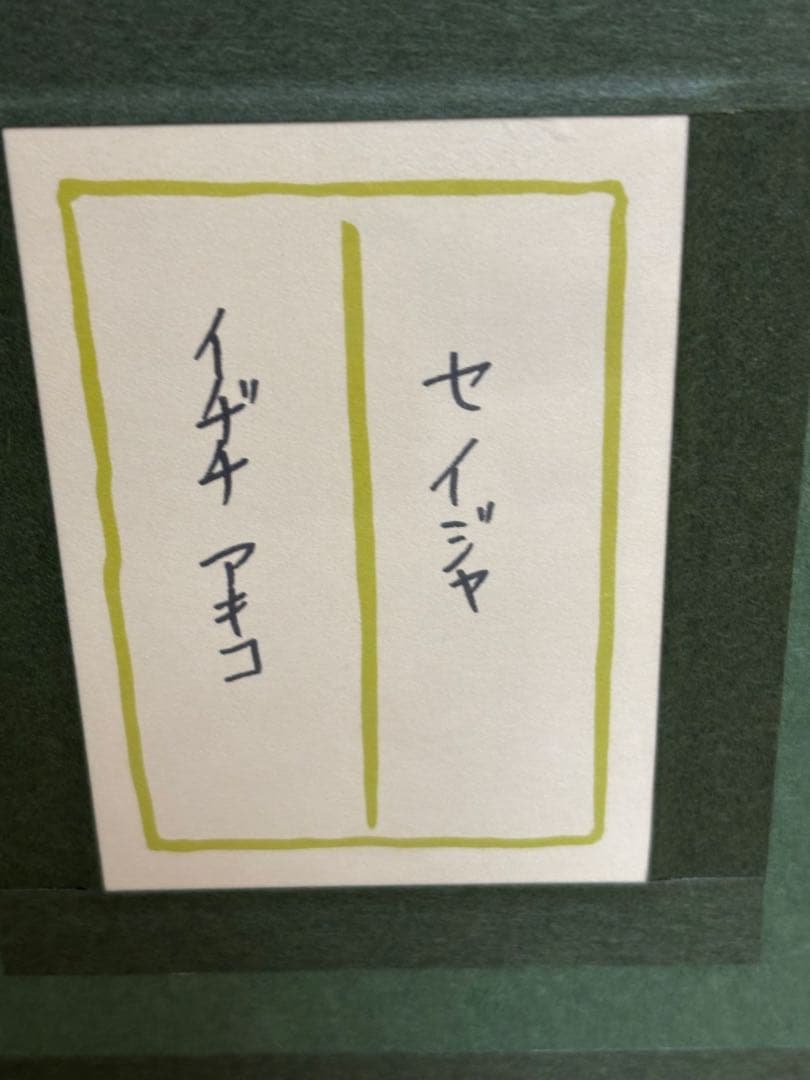 セイジャ
イヂチ アキコ